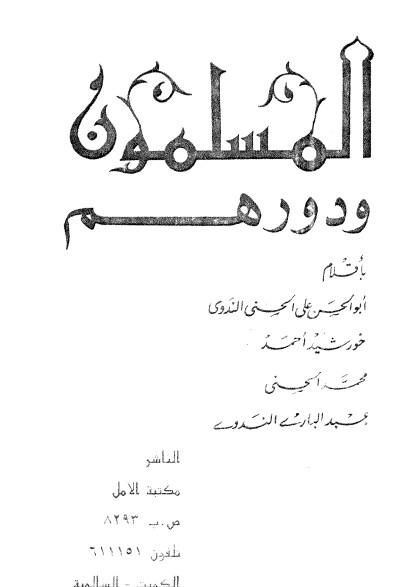 المسلمون
ودورهم
بأقلام
أبو الحسن على الحسنى الندوى
خورشيد أحمد
محمد الحسنى
عبد البارى الندوى
الناشر
مكتبة الامل
ص.ب ٨٢٩٣
تلفون ٦١١١٥١
الكويت - السالمية